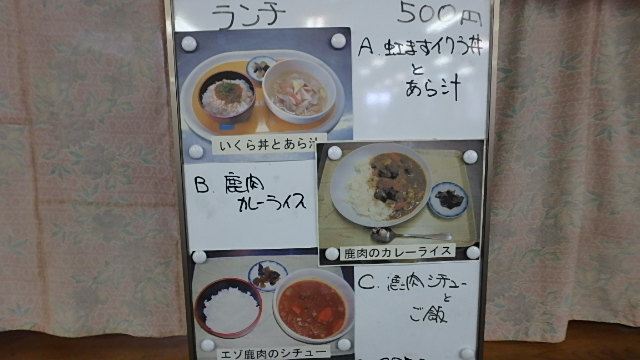 ランチ 500円
A. 虹ますイクラ丼
と
あら汁
いくら丼とあら汁
B. 鹿肉
カレーライス
鹿肉のカレーライス
C. 鹿肉シチュー
と
ご飯
エゾ鹿肉のシチュー